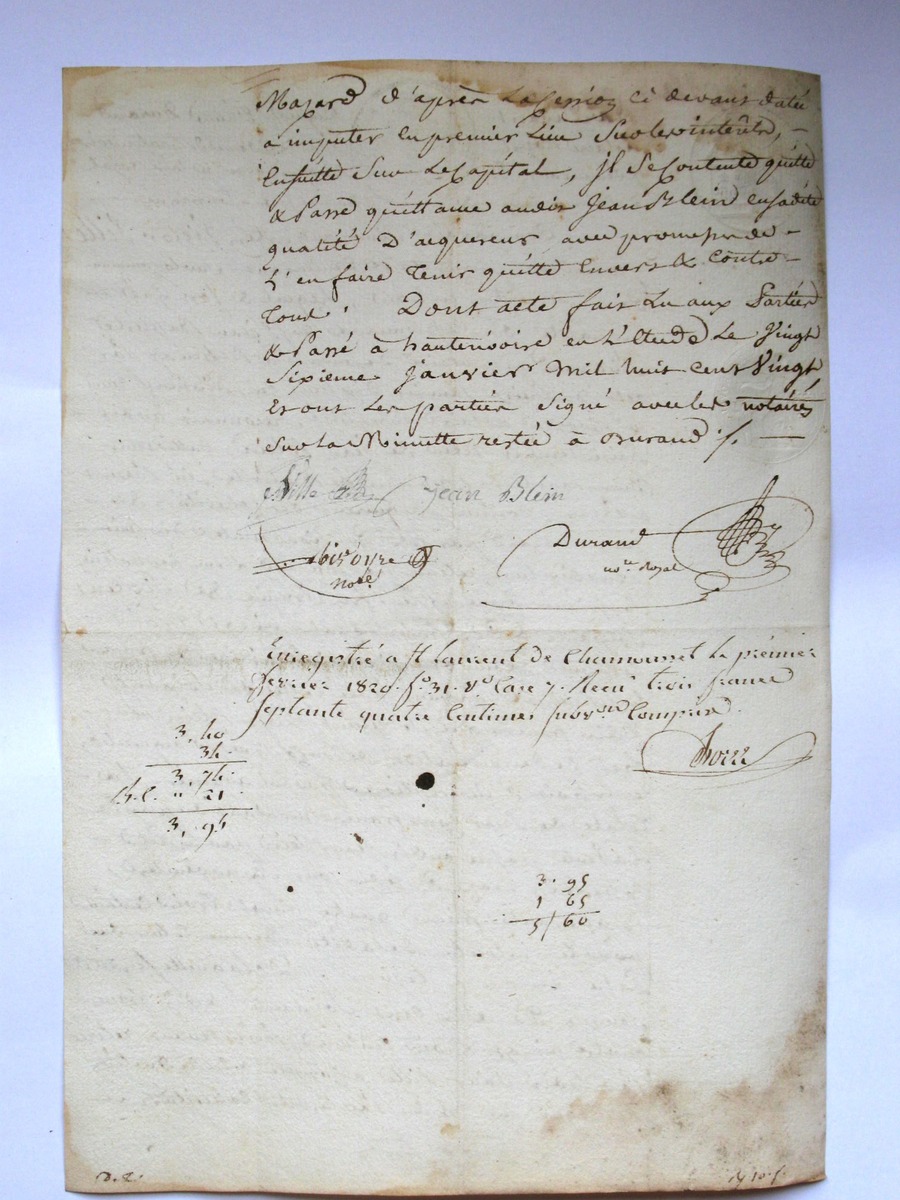 Mazard d'après La Cession ci devant datée
a imputer en premier Lieu Sur les intérêts, –
Ensuitte Sur Le Capital, il Se Contente quitte
& Passe quittance audit Jean Blein en sadite
qualité D'acquereur avec promesse de –
L'en faire Tenir quitte Envers & Contre –
Tous. Dont acte fait Lu aux Parties
& Passé à hauterivoire en L'Etude Le Vingt
Sixieme janvier Mil huit cent Vingt,
Et ont Les parties Signé avec les notaires
Sur La Minutte restée à Durand ./. —
Jean Blein
Durand
no.re Royal
not.e
Enregistré a St Laurent de Chamousset le prémier
fevrier 1820. f.o 31. V.o Case 7. Recu trois francs
septante quatre Centimes subv.on Comprise.
3, 40
34.
3, 74.
21.
3, 95
3. 95
1 65
5/60